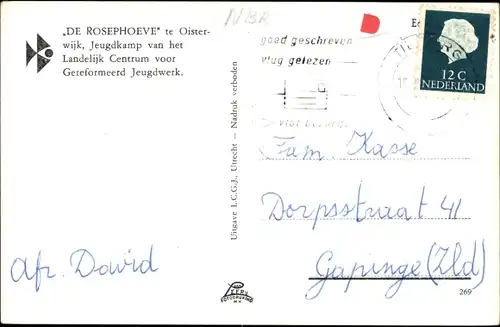 „DE ROSEPHOEVE" te Oister-
wijk, Jeugdkamp van het
Landelijk Centrum voor
Gereformeerd Jeugdwerk.
NBR
goed geschreven
vlug gelezen
TILBURG
12 C
NEDERLAND
Uitgave L.C.G.J., Utrecht – Nadruk verboden
Fam. Kasse
Dorpsstraat 41
Gapinge (Zld)
Afz. David
269